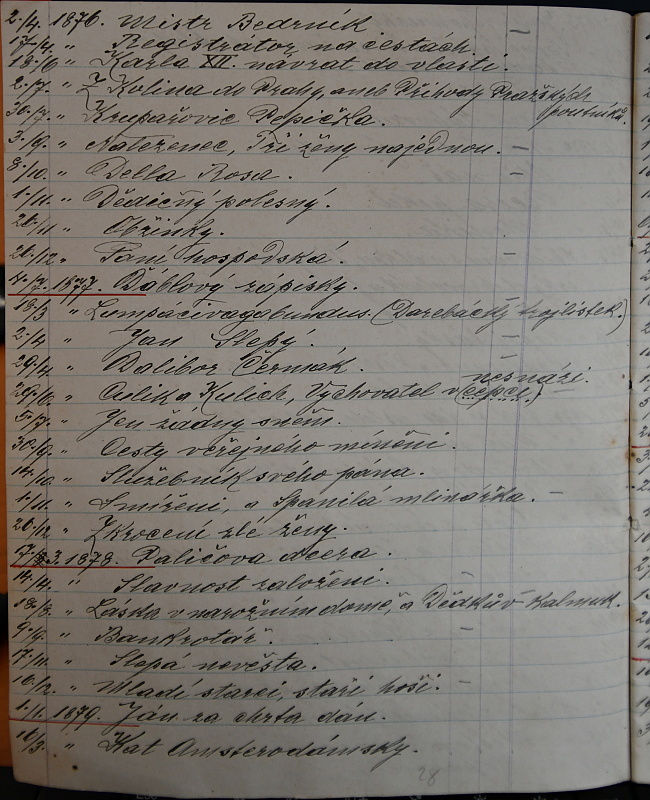 2./4. 1876. Mistr Bedrník
17./4. " Registrátor na cestách.
18./6 " Karla XII. návrat do vlasti.
2./7. " Z Kolína do Prahy, aneb Příhody Pražských poutníků.
30./7. " Krupařovic Pepička.
3./9. " Natěženec, Tři ženy najednou.
8./10. " Della Rosa.
1./11. " Dědičný polesný.
26./11 " Obžinky.
26./12 " Paní hospodská.
4./2. 1877. Ďáblový zápisky.
18./3 " Lumpácivagabundus. (Darebácký trojlístek.)
2./4 " Jan Slepý.
29./4. " Dalibor Čermák.
29./6. " Čilík a Kulich, Vychovatel v nesnázi. (čepci.)
5./7. " Jen žádný sněm.
30./9. " Cesty veřejného mínění.
14./10. " Služebník svého pána.
1./11. " Smíření, a Spanilá mlinářka.
26./12 " Zkrocení zlé ženy.
17./3. 1878. Paličova dcera.
14./4. " Slavnost založení.
18./8. " Láska v narožním domě, a Dědkův Kalmuk.
9./6. " Bankrotář.
17./11. " Slepá nevěsta.
16./12. " Mladí starci, staří hoši.
1./1. 1879. Ján za chrta dán.
16/3. " Kat Amsterodámský.
28